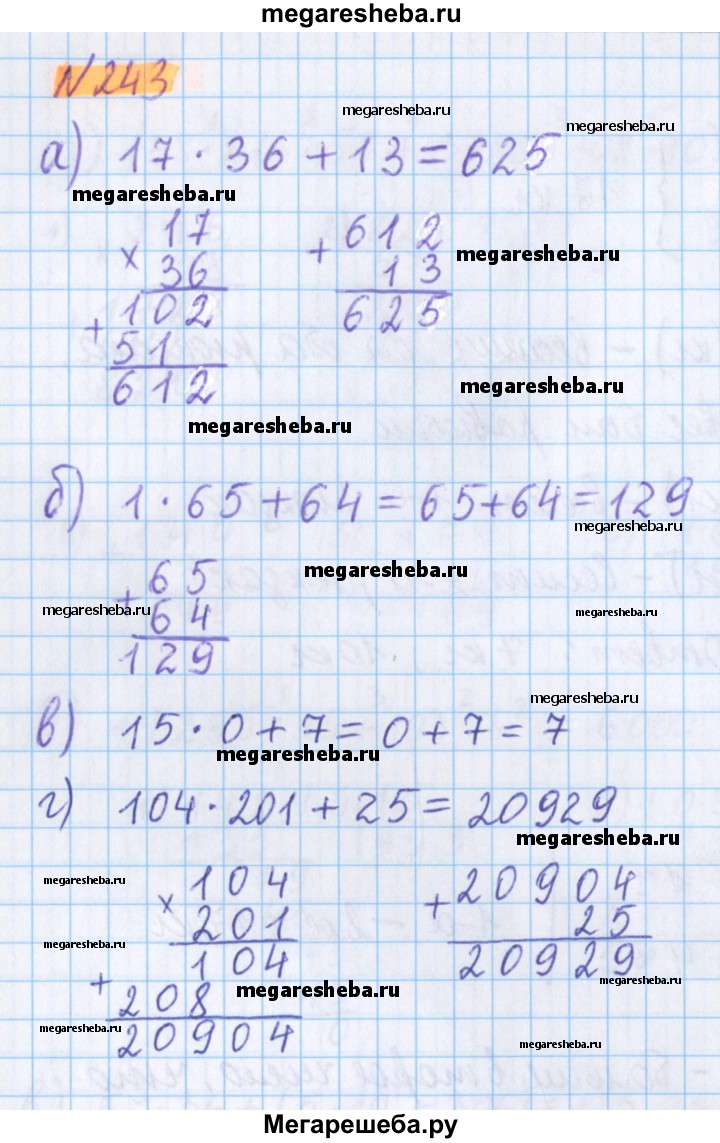 megaresheba.ru
N 243
megaresheba.ru
megaresheba.ru
а) 17 · 36 + 13 = 625
megaresheba.ru
17 + 612
× 36 13 megaresheba.ru
+ 102 625
51
612
megaresheba.ru
megaresheba.ru
б) 1 · 65 + 64 = 65 + 64 = 129
megaresheba.ru
+ 65 megaresheba.ru
megaresheba.ru 64 megaresheba.ru
129
megaresheba.ru
в) 15 · 0 + 7 = 0 + 7 = 7
megaresheba.ru
г) 104 · 201 + 25 = 20929
megaresheba.ru
megaresheba.ru × 104 + 20904
201 25
megaresheba.ru 104 20929
+ 208 megaresheba.ru megaresheba.ru
megaresheba.ru 20904
Мегарешеба.ру